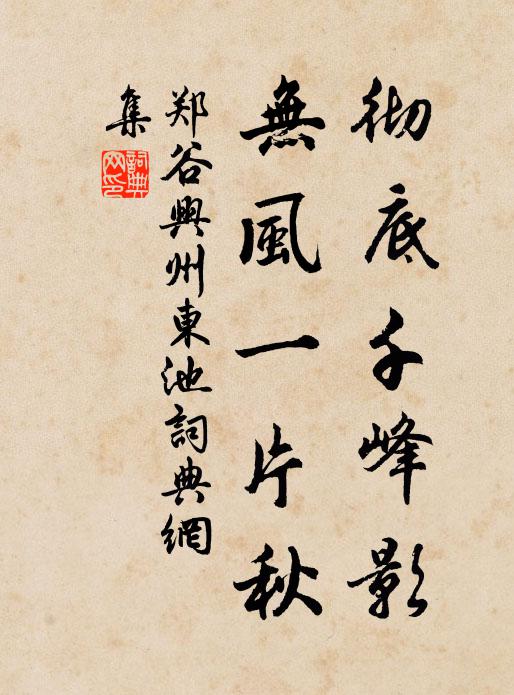 彻底千峰影
無風一片秋
郑谷興州東池詞典網
集
詞典
网印